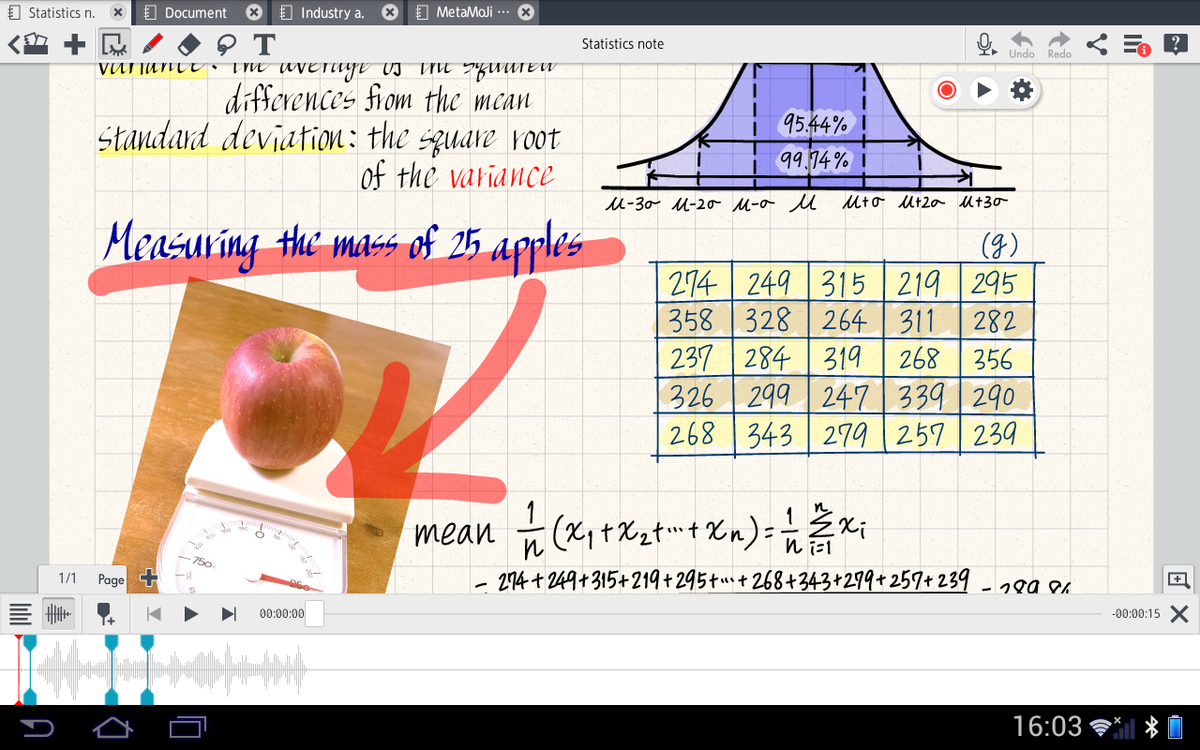 Statistics n.
Document
Industry a.
MetaMoJi ...
Statistics note
Undo
Redo
variance: The average of the squared
differences from the mean
standard deviation: the square root
of the variance
95.44%
99.74%
μ-3σ μ-2σ μ-σ μ μ+σ μ+2σ μ+3σ
Measuring the mass of 25 apples
(g)
274 249 315 219 295
358 328 264 311 282
237 284 319 268 356
326 299 247 339 290
268 343 279 257 239
mean 1/n (x₁+x₂+...+xₙ) = 1/n Σ xᵢ
n
i=1
= 274+249+315+219+295+...+268+343+279+257+239 = 289.84
0
750
250
1/1 Page
00:00:00
-00:00:15
16:03